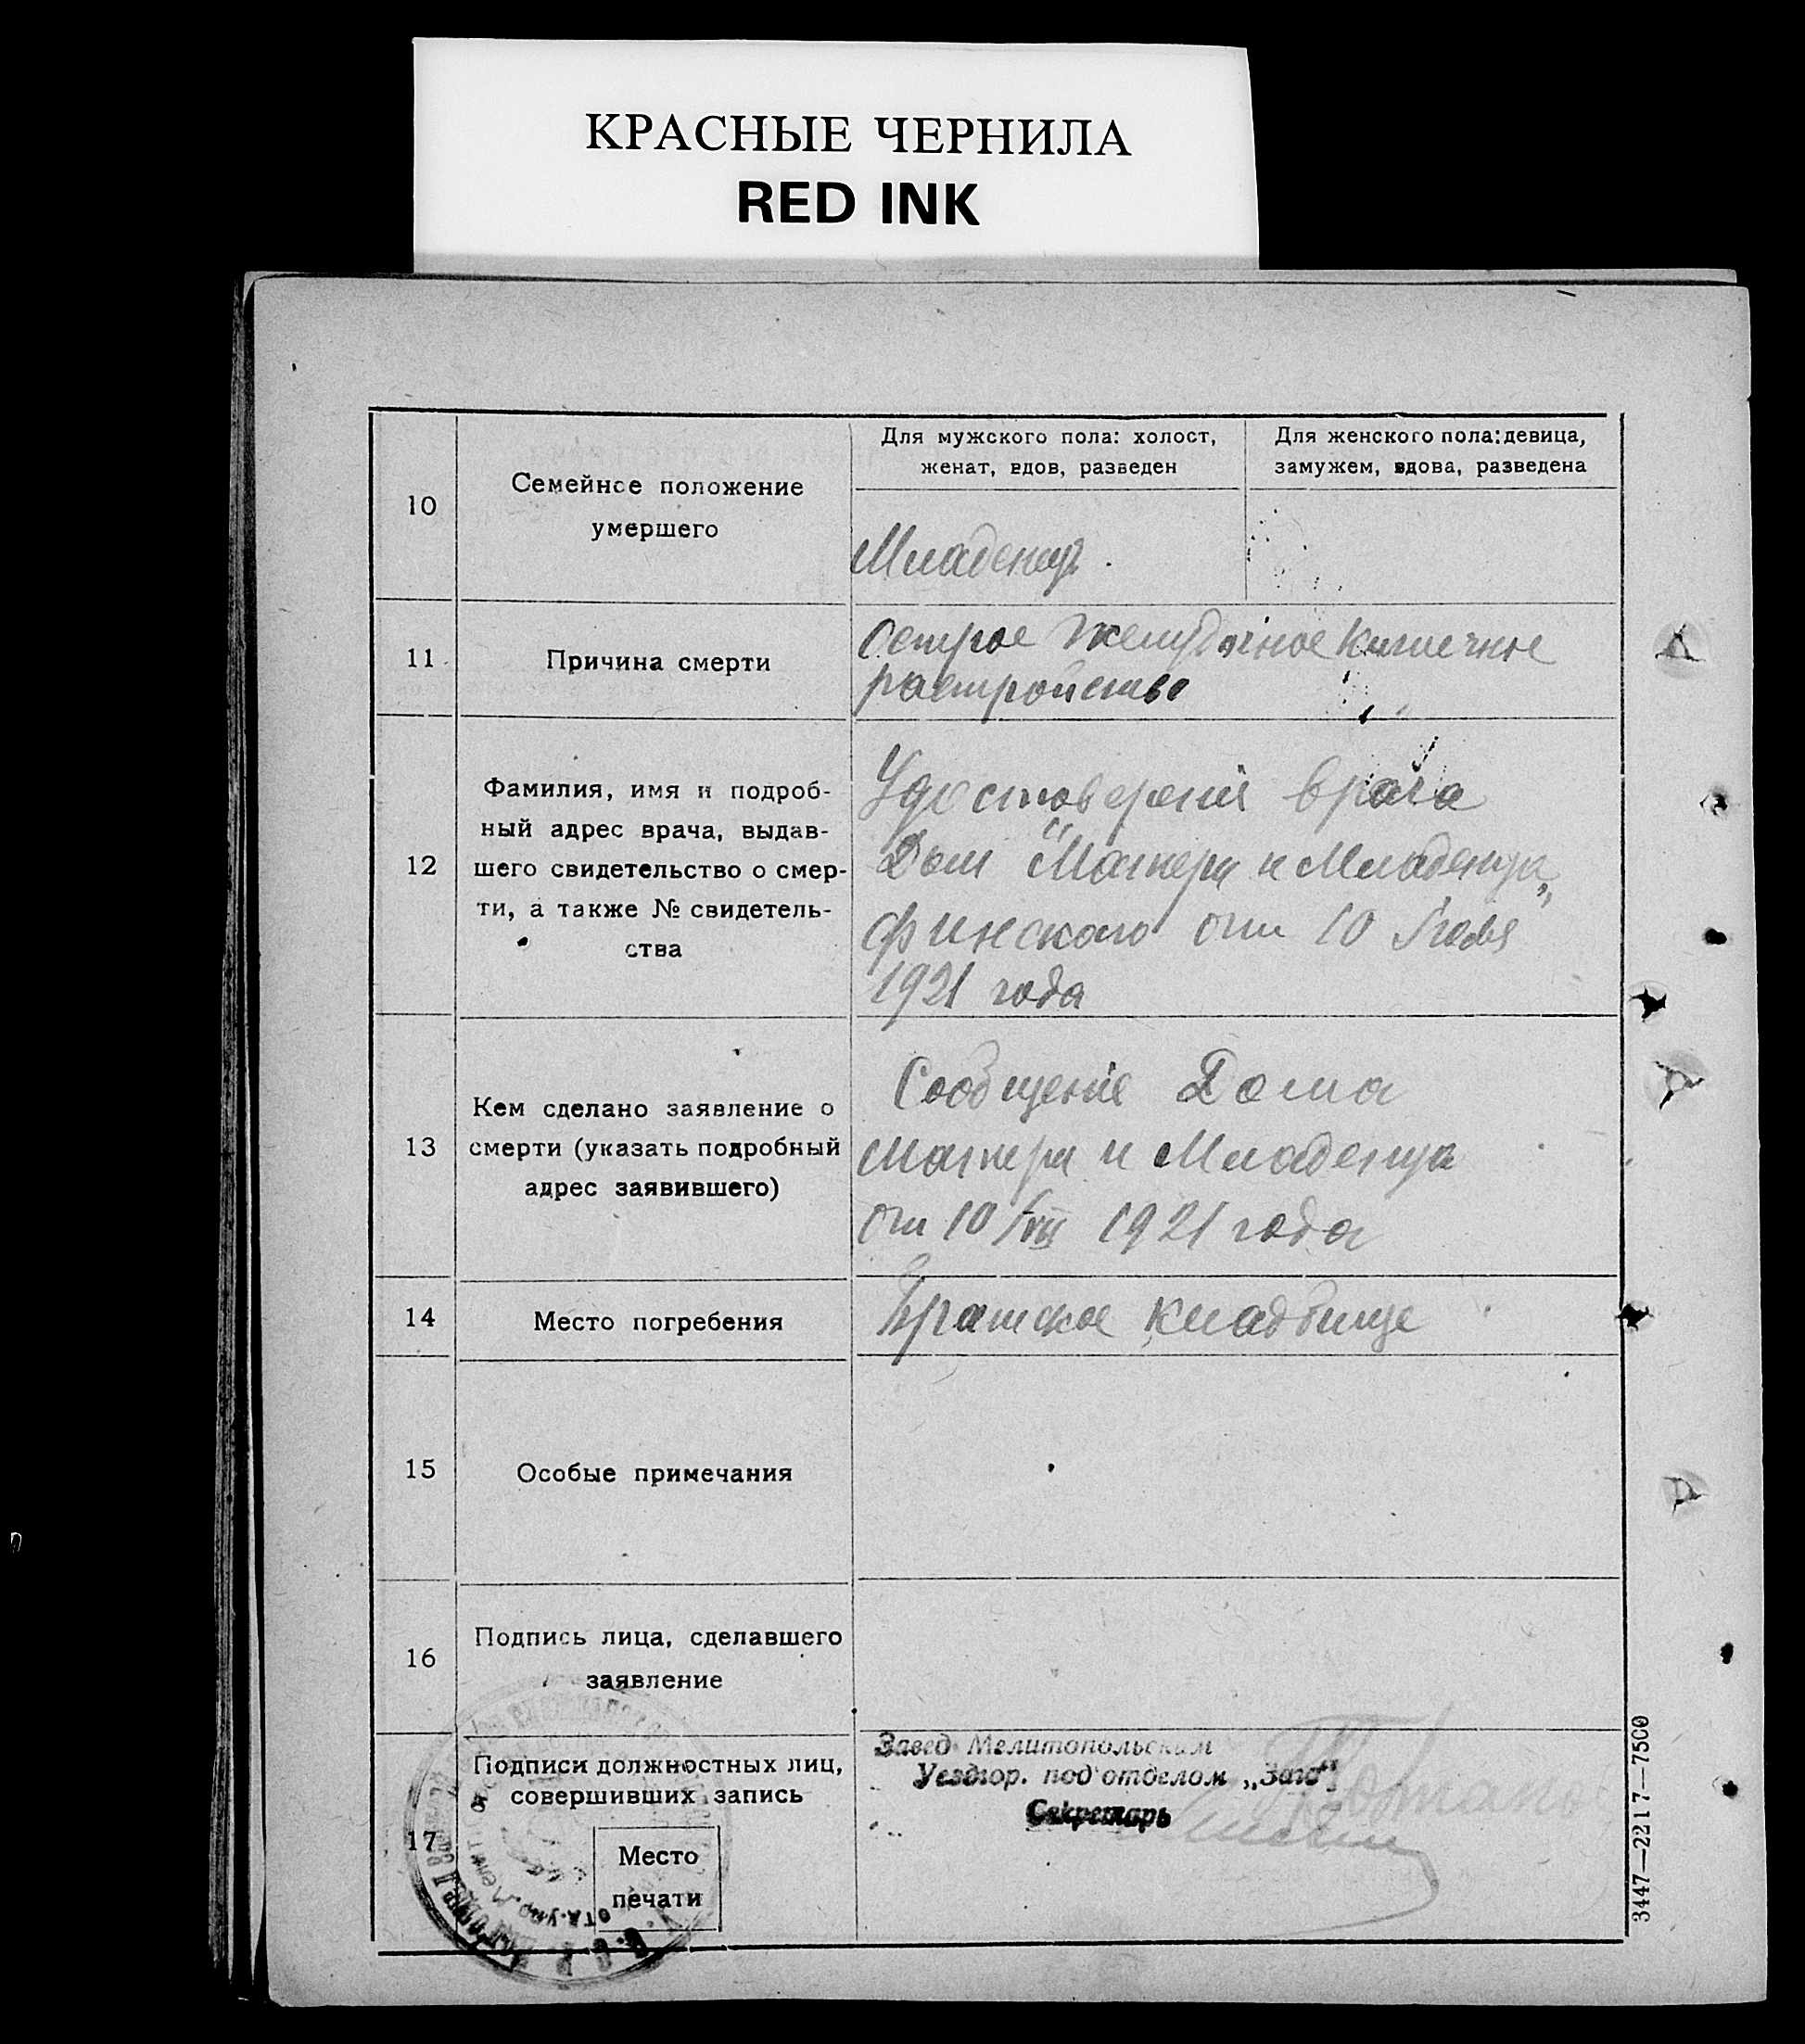 КРАСНЫЕ ЧЕРНИЛА
RED INK
10
Семейное положение
умершего
Для мужского пола: холост,
женат, вдов, разведен
Для женского пола: девица,
замужем, вдова, разведена
Младенец.
11
Причина смерти
Острое Желудочное Кишечное
растройство
12
Фамилия, имя и подроб-
ный адрес врача, выдав-
шего свидетельство о смер-
ти, а также № свидетель-
ства
Удостоверенія врача
Дом "Матери и Младенца"
от 10
1921 года
13
Кем сделано заявление о
смерти (указать подробный
адрес заявившего)
Сообщеніе Дома
Матери и Младенца
от 10/VIII 1921 года
14
Место погребения
Братское кладбище
15
Особые примечания
16
Подпись лица, сделавшего
заявление
17
Подписи должностных лиц,
совершивших запись
Место
печати
Завед. Мелитопольским
Уездгор. под'отделом „Загс"
Секретарь
3447—2217—7500